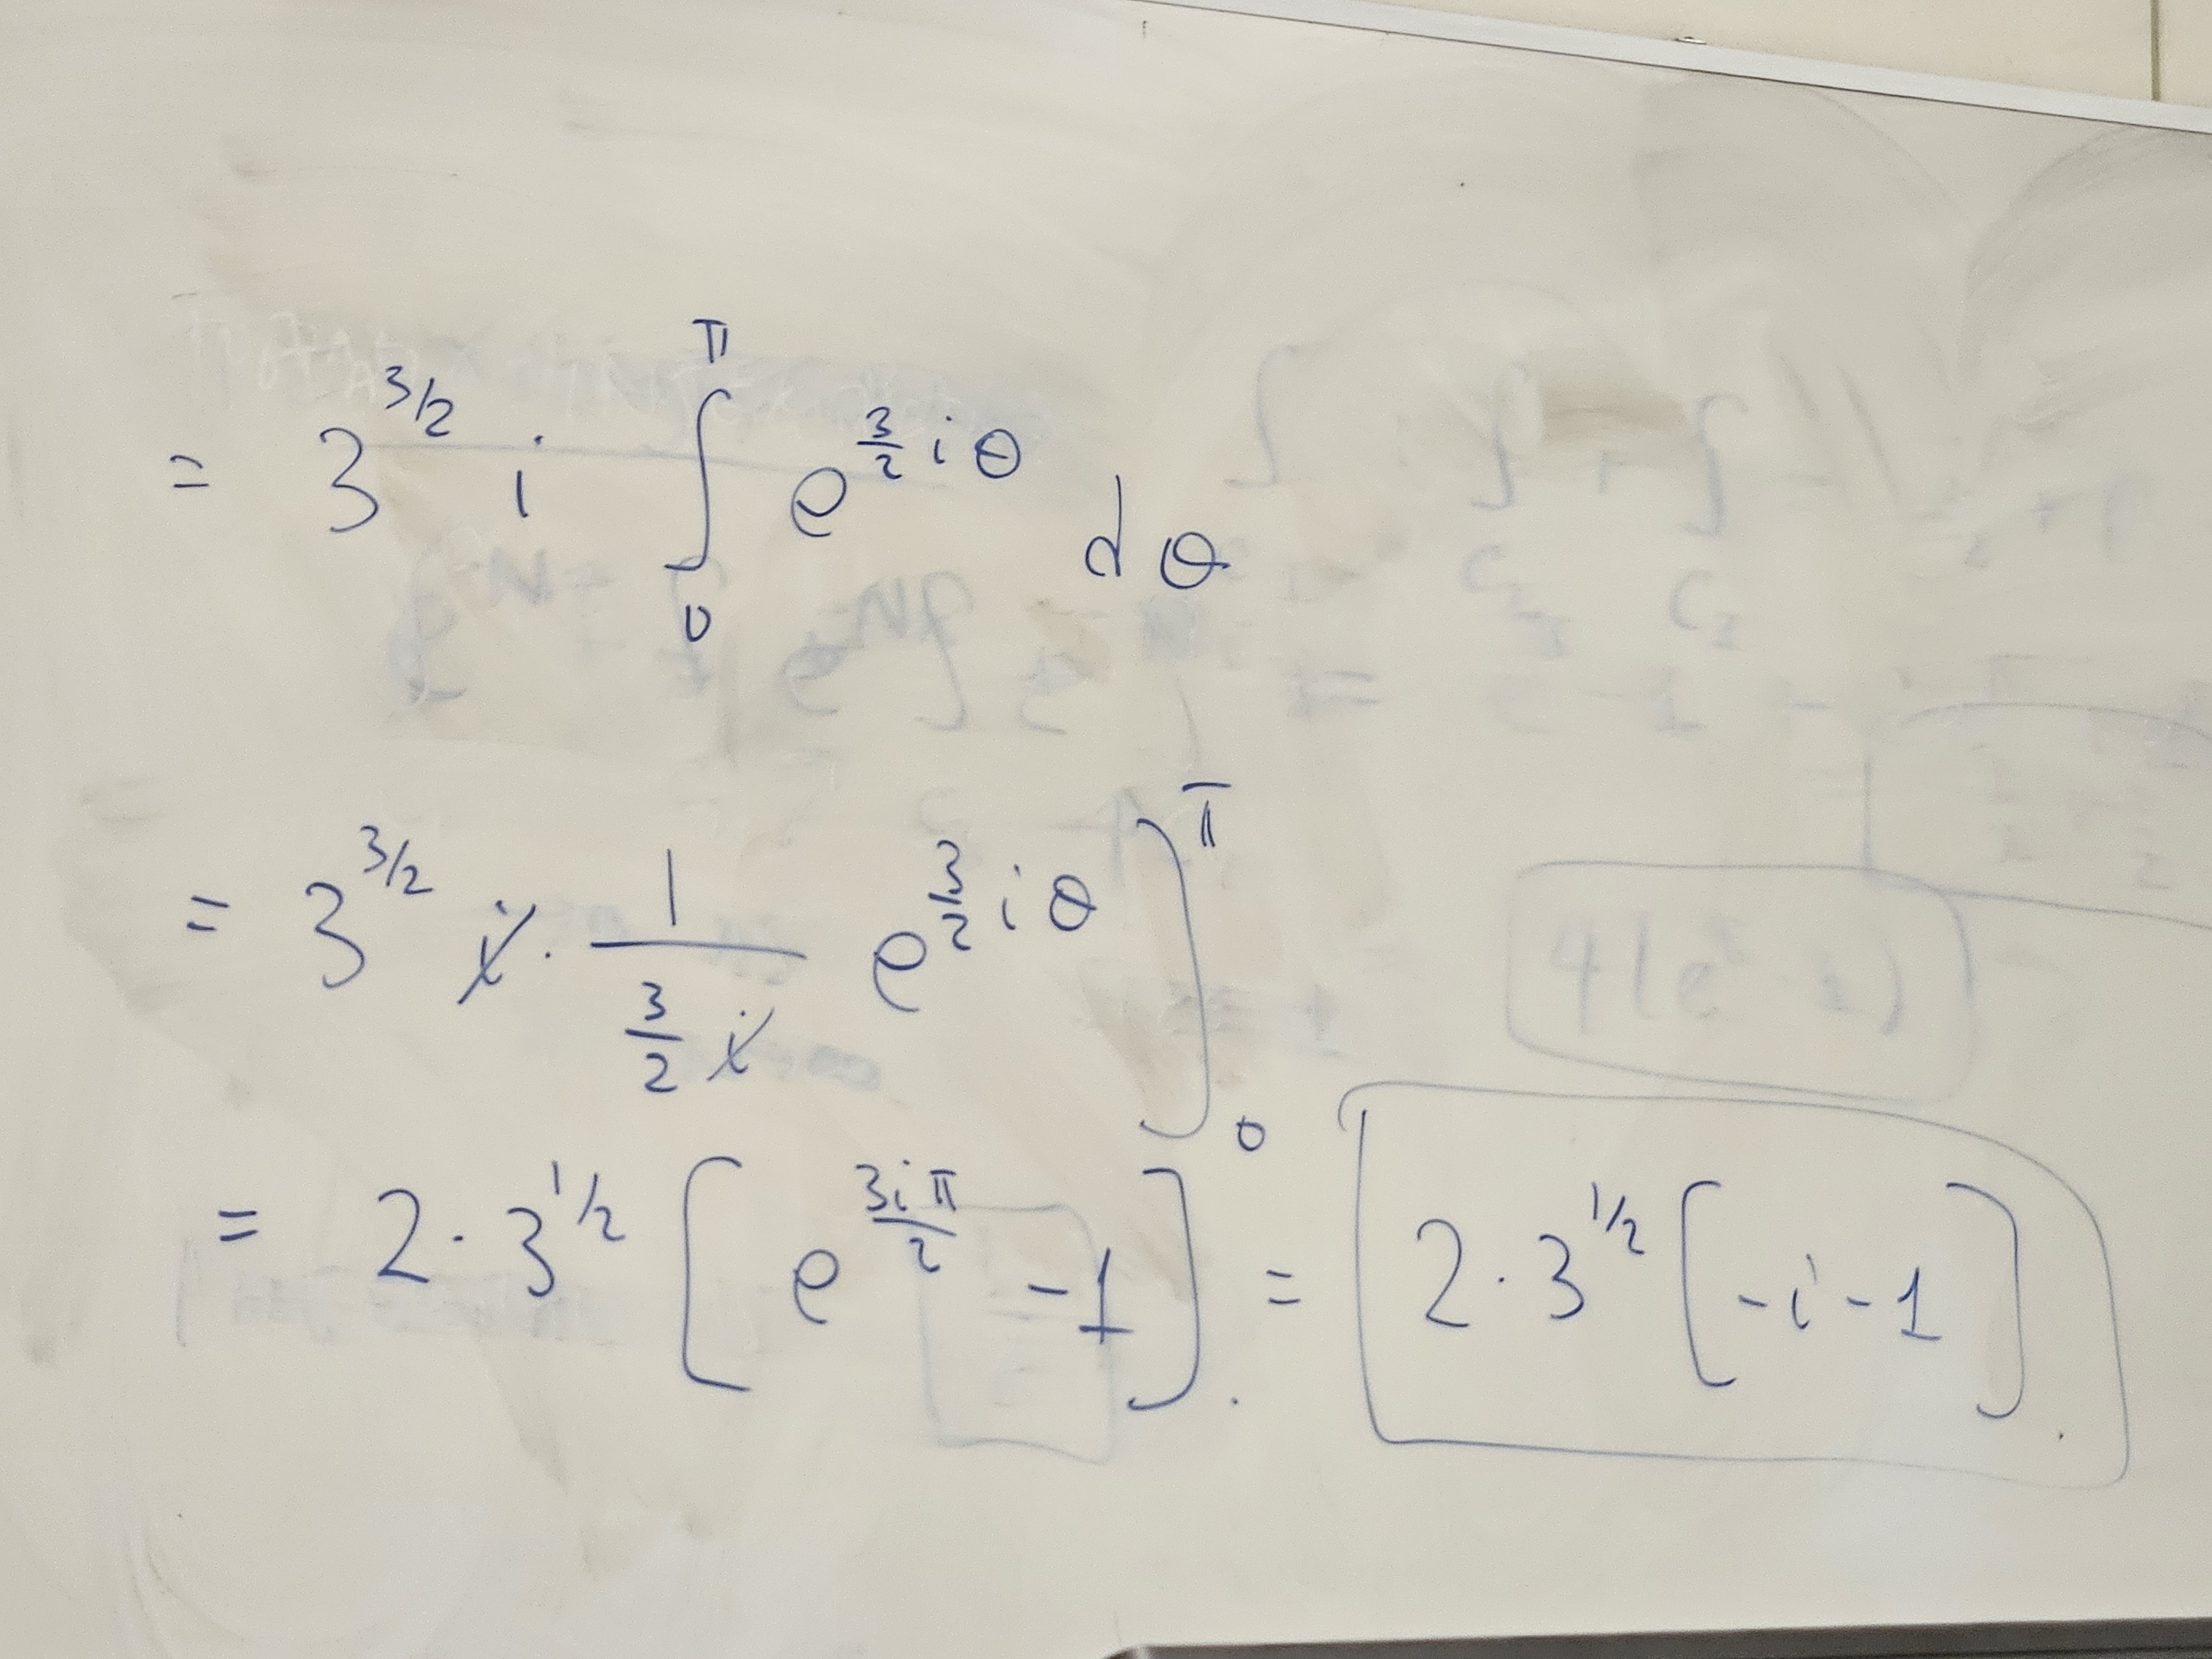 = 3^{3/2} i ∫_0^π e^{\frac{3}{2} i θ} dθ
= 3^{3/2} i · \frac{1}{\frac{3}{2} i} e^{\frac{3}{2} i θ} ]_0^π
= 2 · 3^{1/2} [ e^{\frac{3iπ}{2}} - 1 ] . = 2 · 3^{1/2} [ -i - 1 ] .